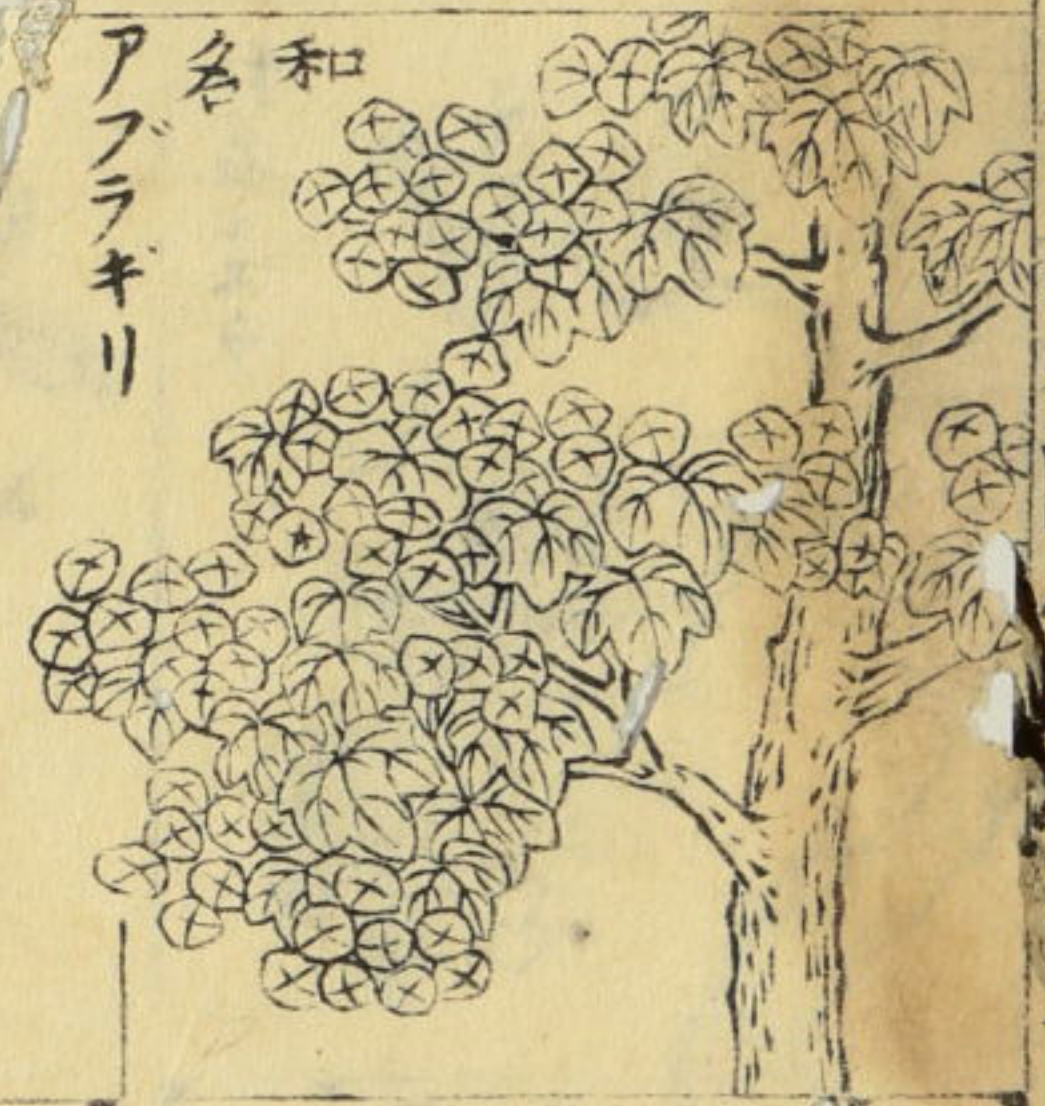 和名
アブラギリ